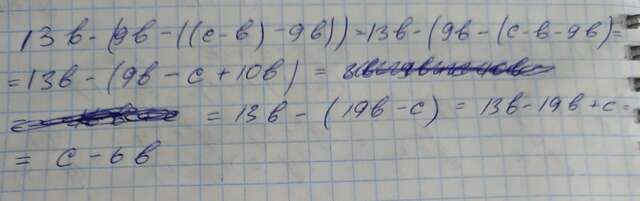 13в-(9в-((с-в)-9в))=13в-(9в-(с-в-9в)=
=13в-(9в-с+10в)=
=13в-(19в-с)=13в-19в+с=
=с-6в